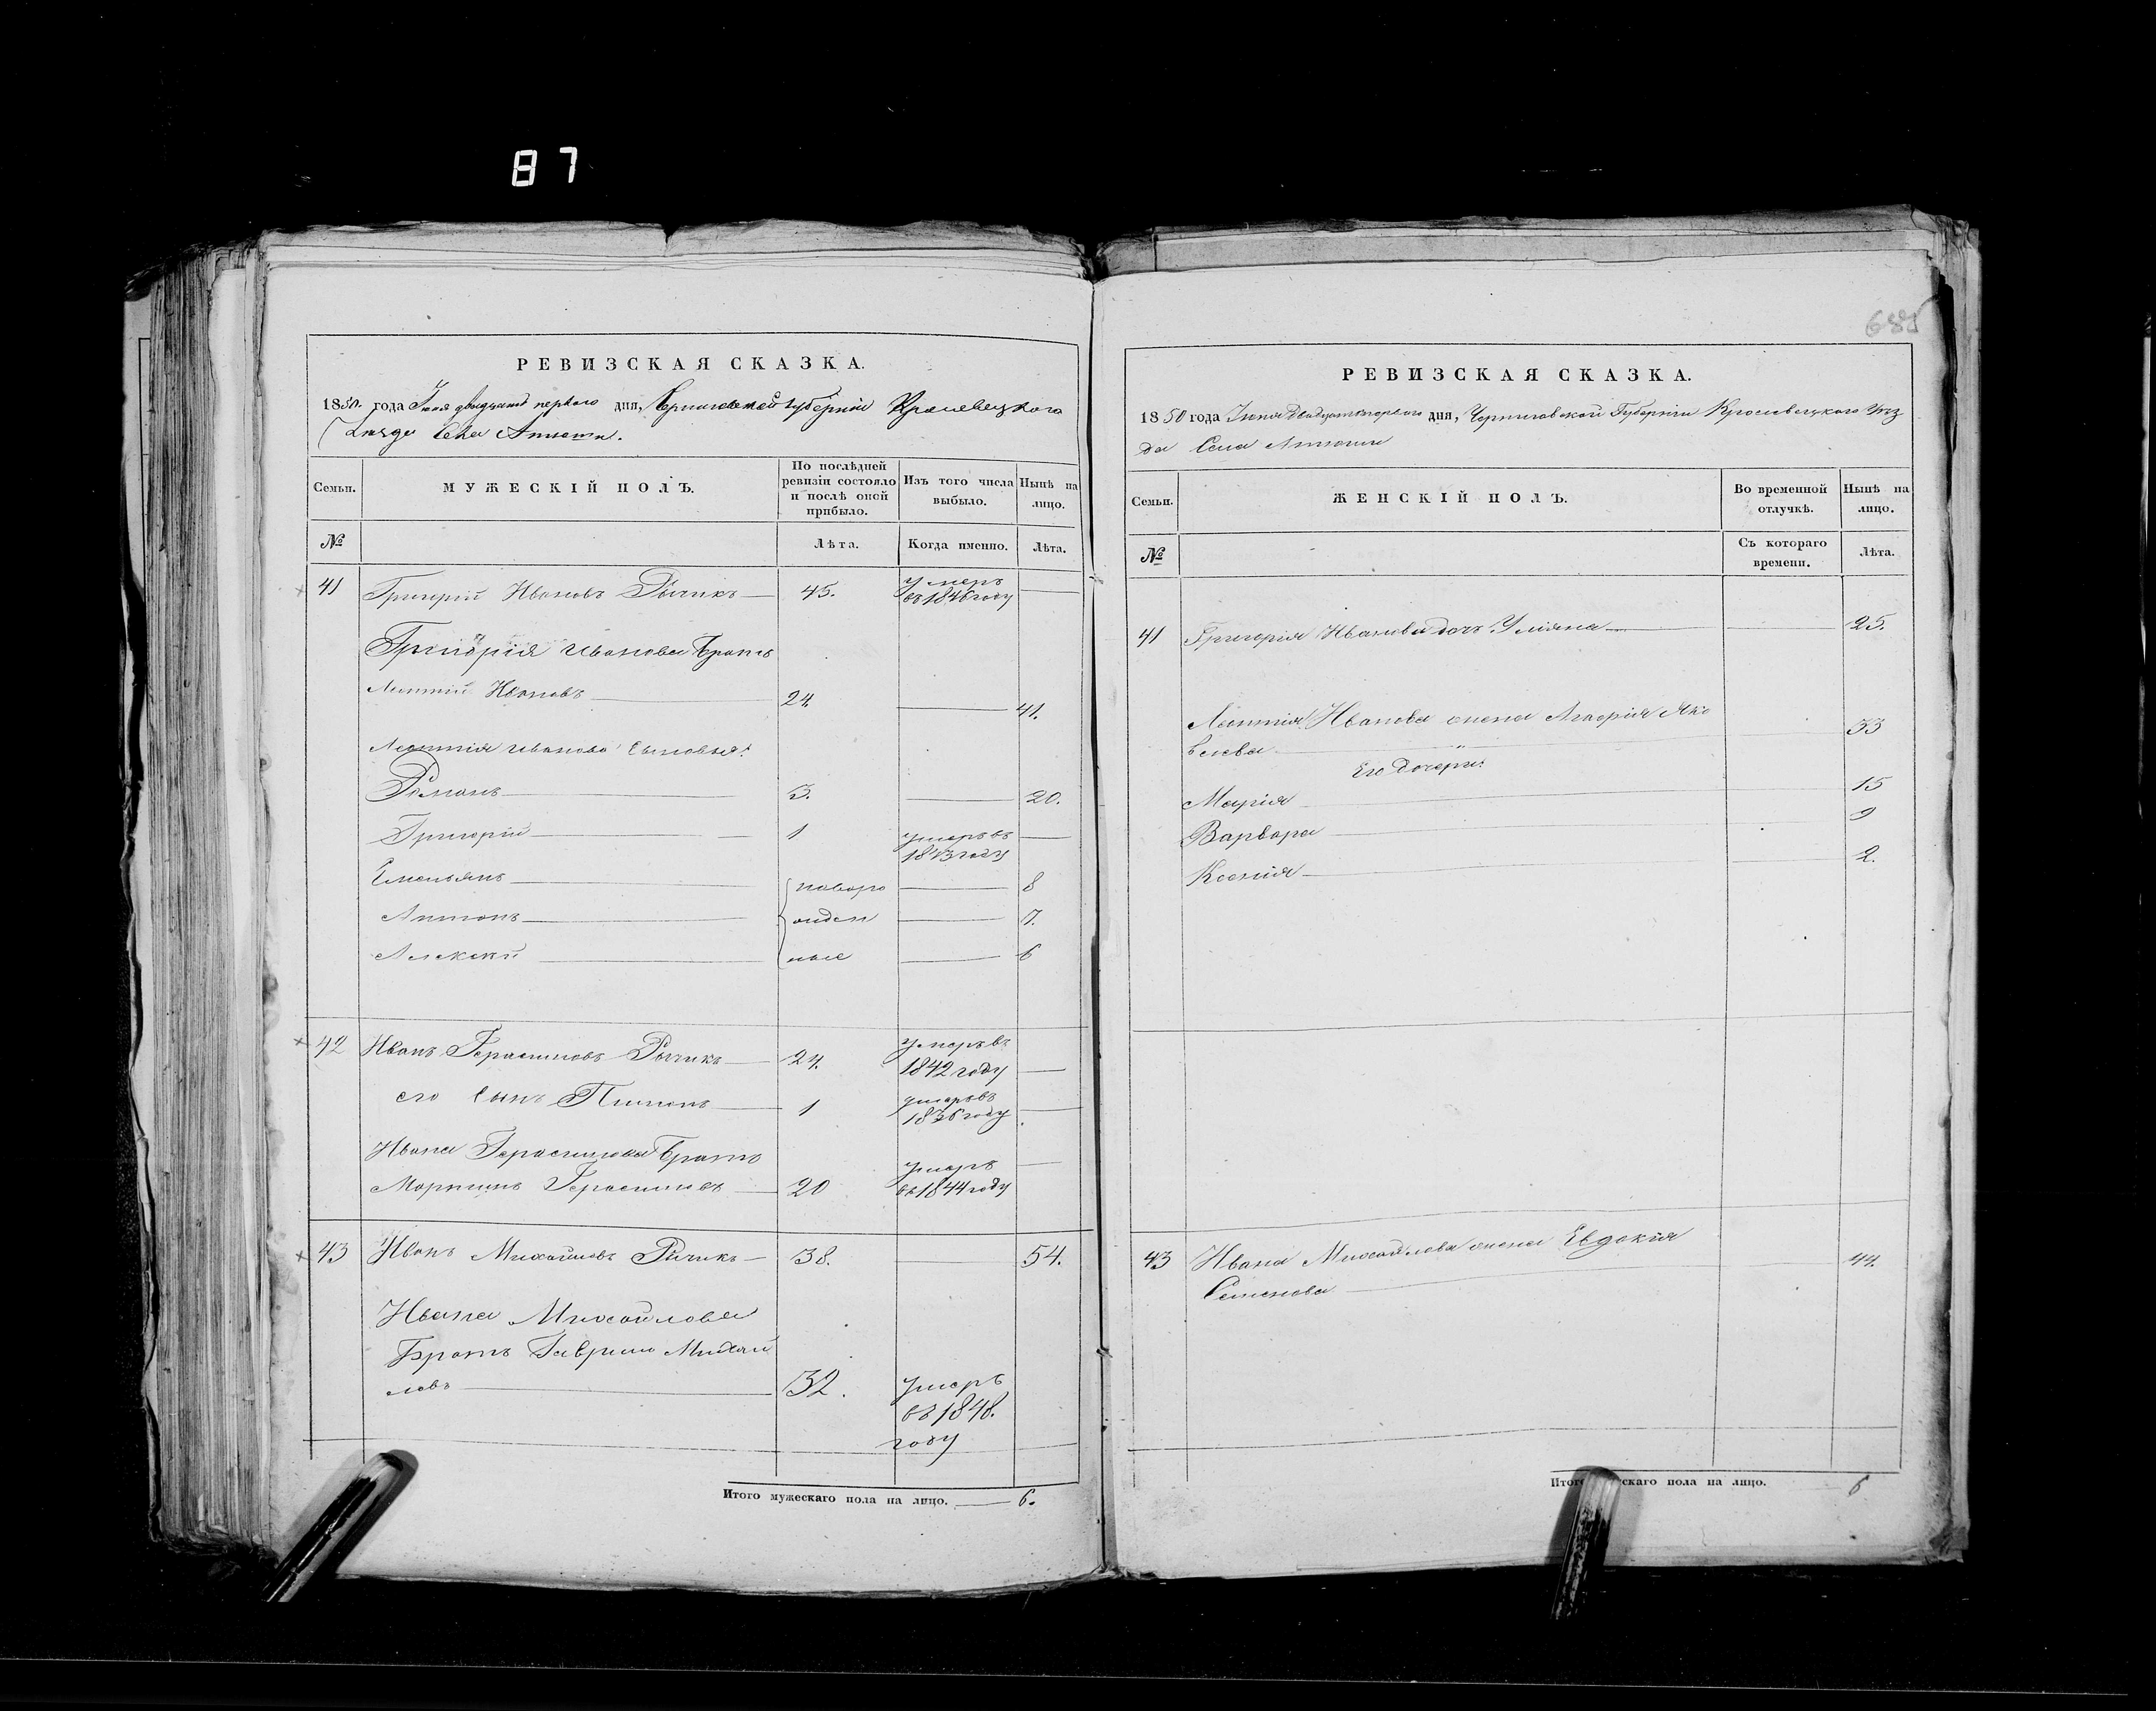 87
РЕВИЗСКАЯ СКАЗКА.
1850. года Іюня двадцать первого дня, Черниговской губерніи Кролевецкого
Уезда Села
Семьи. МУЖЕСКІЙ ПОЛЪ. По послѣдней ревизіи состояло и послѣ оной прибыло. Изъ того числа выбыло. Нынѣ на лицо.
№ Лѣта. Когда именно. Лѣта.
41 Григорій Ивановъ Рычикъ 45. умеръ
въ 1846 году
Григорія Иванова братъ
Леонтій Ивановъ 24. 41.
Леонтія Иванова Сыновья:
Романъ 3. 20.
Григорій 1 умеръ въ
1843 году
Емельянъ новоро 8
Антонъ жден 7.
Алексей ные 6
42 Иванъ Герасимовъ Рычикъ 24. умеръ въ
1842 году
его Сынъ Пименъ 1 умеръ въ
1836 году
Ивана Герасимова братъ
Мартинъ Герасимовъ 20 умеръ
въ 1844 году
43 Иванъ Михайловъ Рычикъ 38. 54.
Ивана Михайлова
Братъ Гаврило Михай
ловъ 32. умеръ
въ 1848.
году
Итого мужескаго пола на лицо. 6.
685
РЕВИЗСКАЯ СКАЗКА.
1850 года Іюня дня, Черниговской Губерніи Кролевецкого Уез
да Села
Семьи. ЖЕНСКІЙ ПОЛЪ. Во временной отлучкѣ. Нынѣ на лицо.
№ Съ котораго времени. Лѣта.
41 Григорія Иванова дочь Уліяна 25.
Леонтія Иванова жена Яко 33
влева
Его дочери:
Марія 15
Варвара 9
Ксенія 2.
43 Ивана Михайлова жена Евдокія 44.
Семенова
Итого скаго пола на лицо. 6